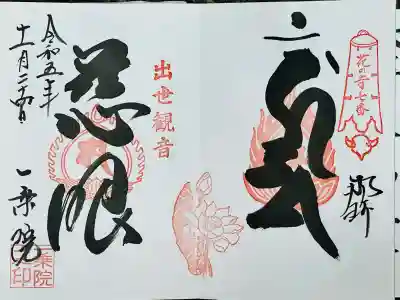 花の寺七番
出世観音
慈眼
令和五年
十一月二十四日
一乗院
一乗院印